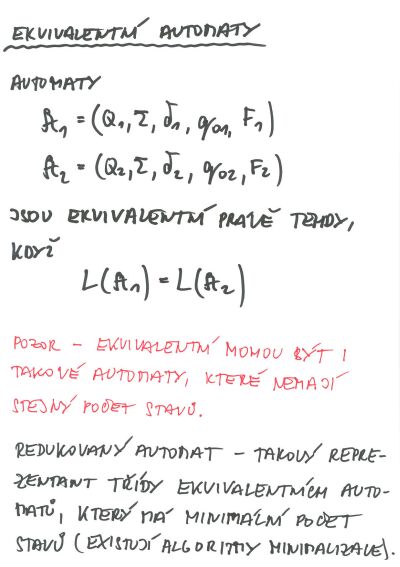 EKVIVALENTNÍ AUTOMATY
AUTOMATY
A₁ = (Q₁, Σ, δ₁, q₀₁, F₁)
A₂ = (Q₂, Σ, δ₂, q₀₂, F₂)
JSOU EKVIVALENTNÍ PRÁVĚ TEHDY,
KDYŽ
L(A₁) = L(A₂)
POZOR – EKVIVALENTNÍ MOHOU BÝT I
TAKOVÉ AUTOMATY, KTERÉ NEMAJÍ
STEJNÝ POČET STAVŮ.
REDUKOVANÝ AUTOMAT – TAKOVÝ REPRE-
ZENTANT TŘÍDY EKVIVALENTNÍCH AUTO-
MATŮ, KTERÝ MÁ MINIMÁLNÍ POČET
STAVŮ (EXISTUJÍ ALGORITMY MINIMALIZACE).